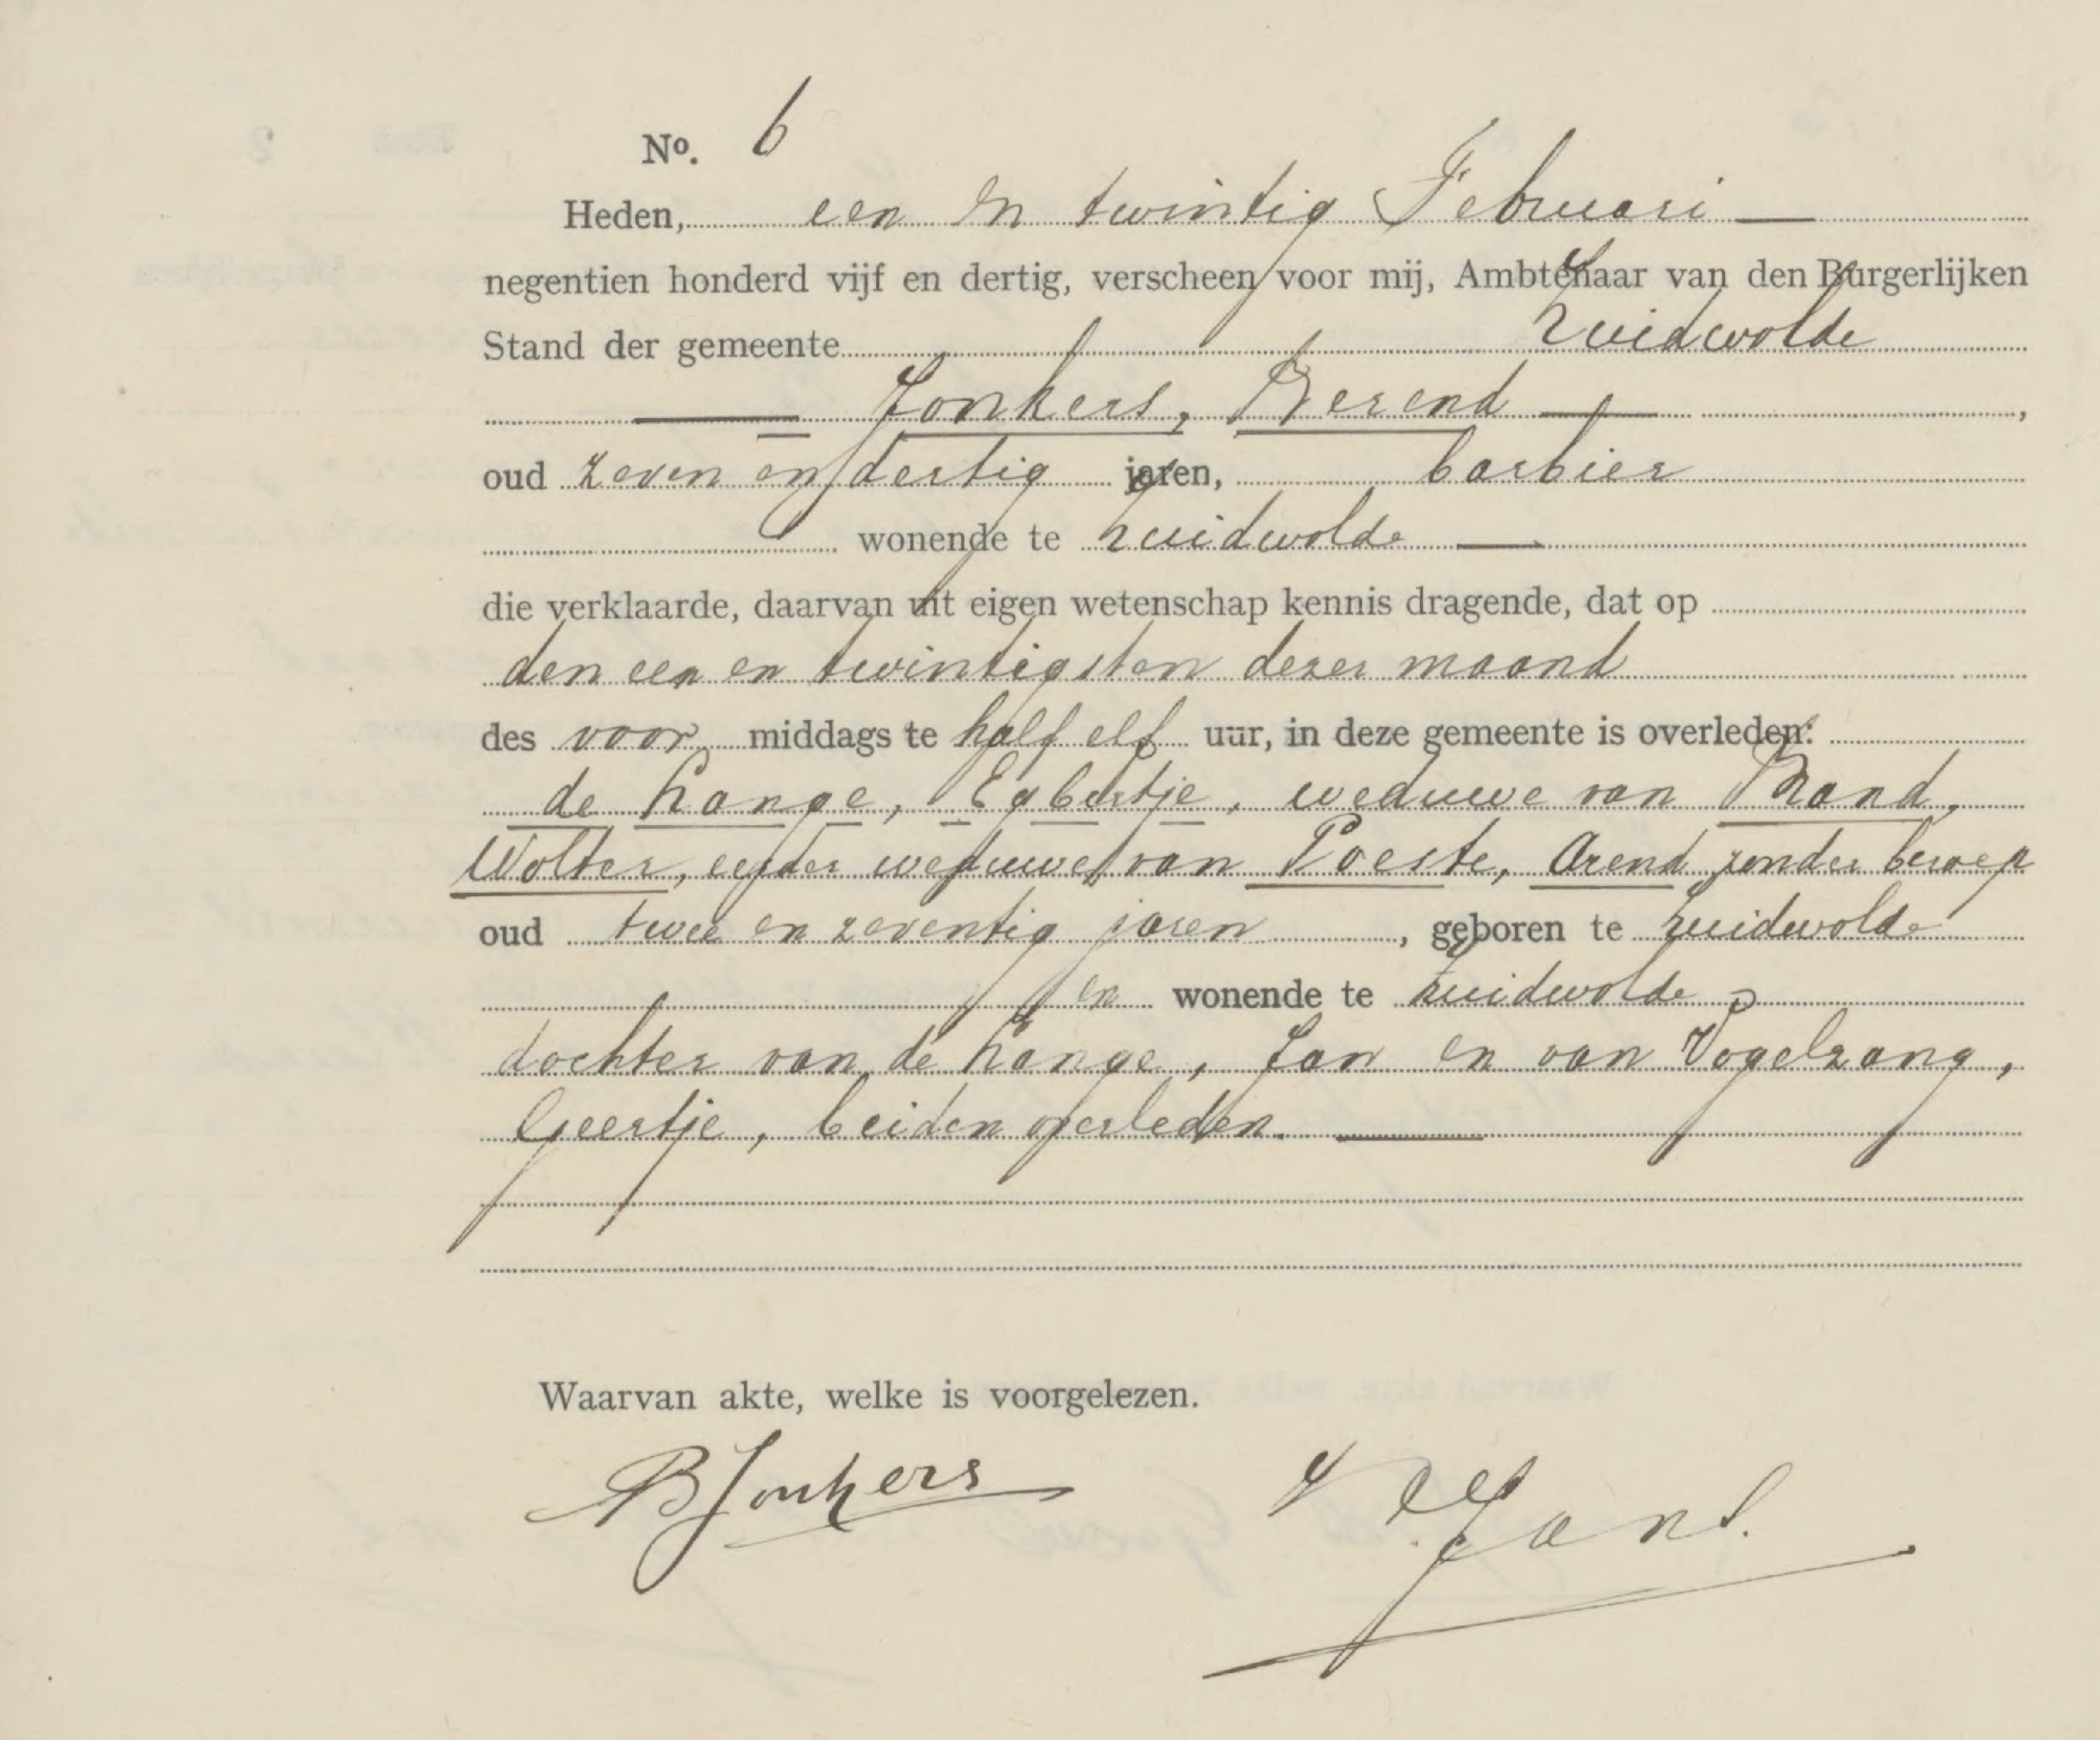 No. 6
Heden, een en twintig Februari
negentien honderd vijf en dertig, verscheen voor mij, Ambtenaar van den Burgerlijken
Stand der gemeente Zuidwolde
Jonkers, Berend ,
oud zeven en dertig jaren, barbier
wonende te Zuidwolde
die verklaarde, daarvan uit eigen wetenschap kennis dragende, dat op
den een en twintigsten dezer maand
des voor middags te half elf uur, in deze gemeente is overleden:
de Lange, Egbertje, weduwe van Brand,
Wolter, eerder weduwe van Poeste, Arend zonder beroep
oud twee en zeventig jaren , geboren te Zuidwolde
en wonende te Zuidwolde,
dochter van de Lange, Jan en van Vogelzang,
Geertje, beiden overleden.
Waarvan akte, welke is voorgelezen.
B Jonkers